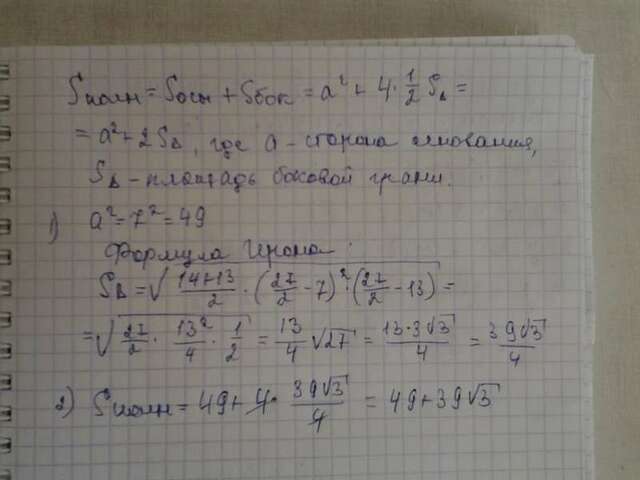 Sполн = Sосн + Sбок = a² + 4·1/2 S△ =
= a² + 2S△, где a - сторона основания,
S△ - площадь боковой грани.
1) a² = 7² = 49
Формула Герона:
S△ = √((14+13)/2 · (27/2 - 7)² · (27/2 - 13)) =
= √(27/2 · 13²/4 · 1/2) = 13/4 √27 = 13·3√3/4 = 39√3/4
2) Sполн = 49 + 4 · 39√3/4 = 49 + 39√3